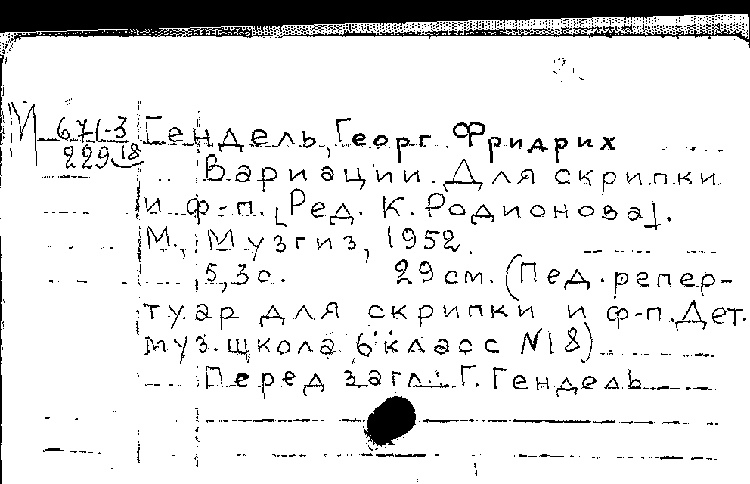 М 671-3 Гендель, Георг Фридрих
229 18
Вариации. Для скрипки
и ф-п. [Ред. К. Родионова].
М., Музгиз, 1952.
5,3 с. 29 см. (Пед. репер-
туар для скрипки и ф-п. Дет.
муз. школа 6 класс N18)
Перед загл.: Г. Гендель